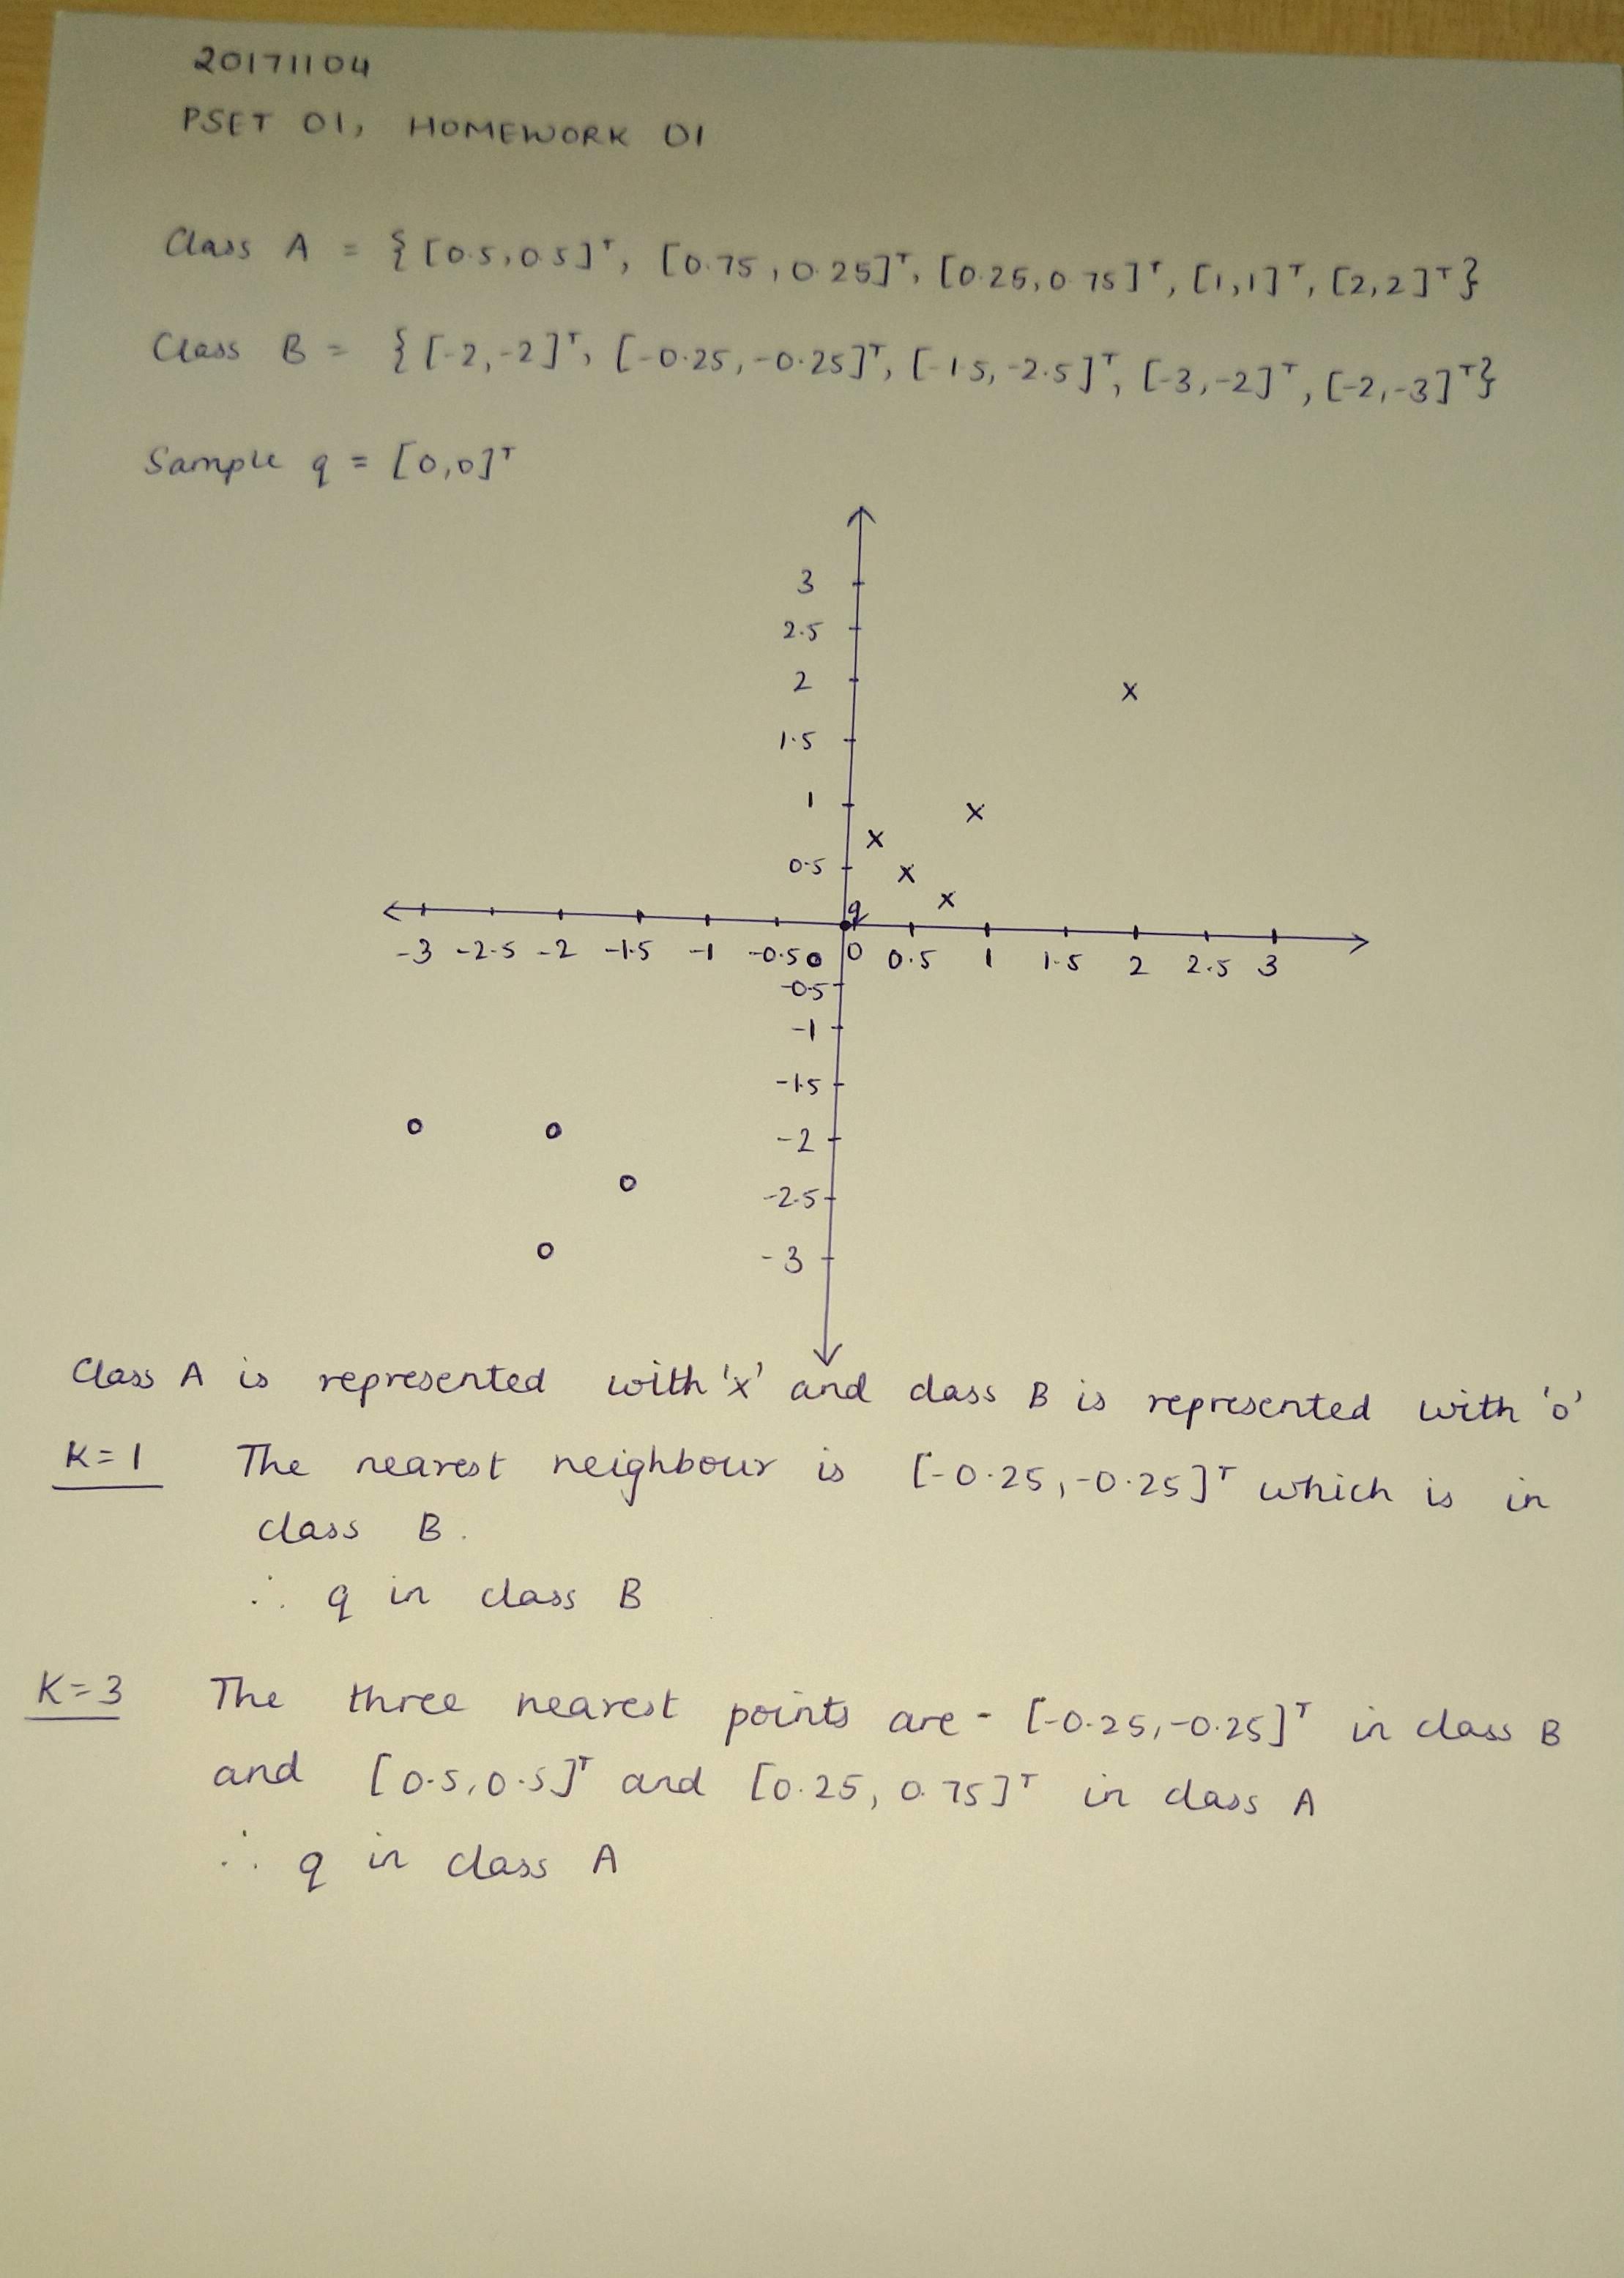 20171104
PSET 01, HOMEWORK 01
Class A = {[0.5,0.5]ᵀ, [0.75,0.25]ᵀ, [0.25,0.75]ᵀ, [1,1]ᵀ, [2,2]ᵀ}
Class B = {[-2,-2]ᵀ, [-0.25,-0.25]ᵀ, [-1.5,-2.5]ᵀ, [-3,-2]ᵀ, [-2,-3]ᵀ}
Sample q = [0,0]ᵀ
3
2.5
2
x
1.5
1
x
x
0.5
x
x
q
-3 -2.5 -2 -1.5 -1 -0.5 o 0 0.5 1 1.5 2 2.5 3
-0.5
-1
-1.5
o o -2
o
-2.5
o
-3
Class A is represented with 'x' and class B is represented with 'o'
K=1 The nearest neighbour is [-0.25,-0.25]ᵀ which is in
class B.
∴ q in class B
K=3 The three nearest points are - [-0.25,-0.25]ᵀ in class B
and [0.5,0.5]ᵀ and [0.25, 0.75]ᵀ in class A
∴ q in class A